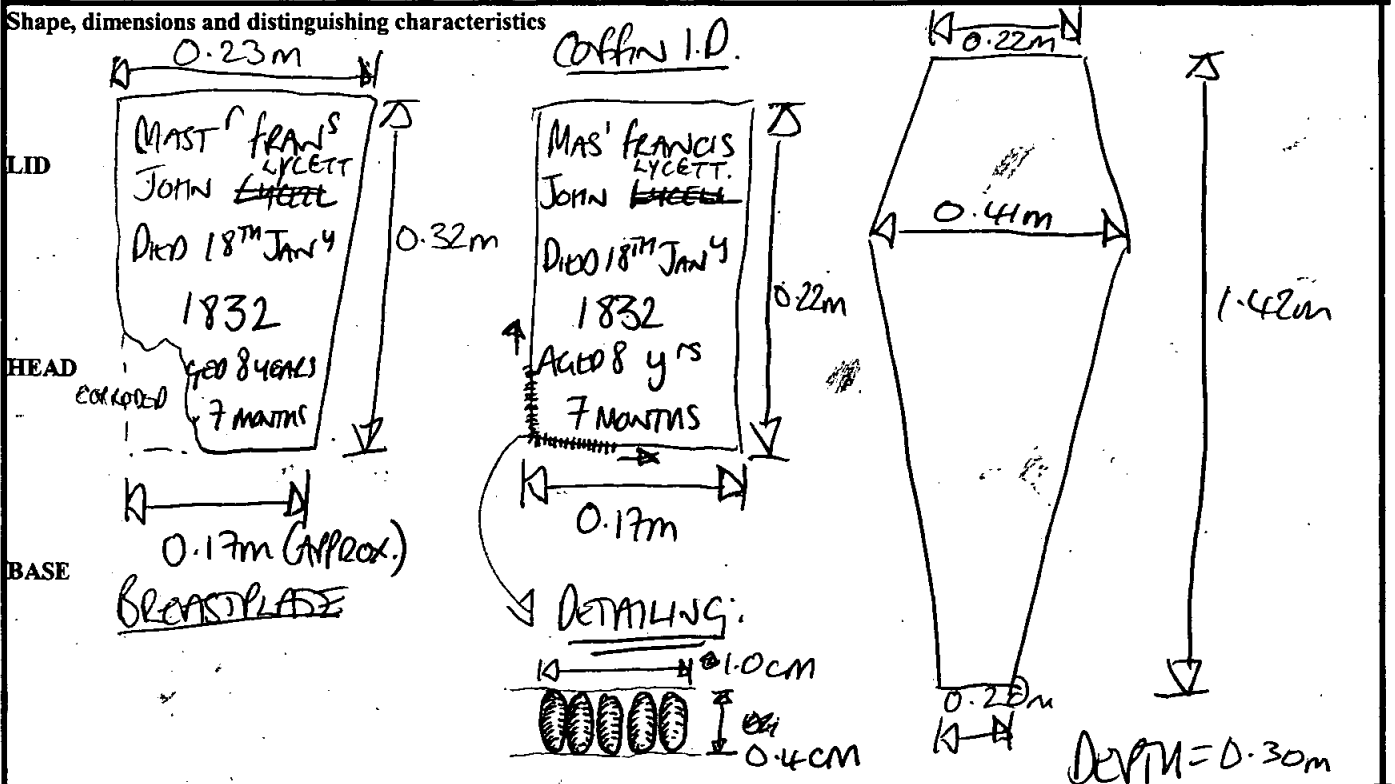 Shape, dimensions and distinguishing characteristics
LID
HEAD
BASE
0.23m
MASTr FRANS
LYCETT
JOHN
DIED 18TH JANy
1832
GED 8 YEARS
7 MONTHS
CORRODED
0.32m
0.17m (APPROX.)
BREASTPLATE
COFFIN I.D.
MAS' FRANCIS
LYCETT.
JOHN
DIED 18TH JANy
1832
AGED 8 yrs
7 MONTHS
0.22m
0.17m
DETAILING:
1.0cm
0.4cm
0.22m
0.41m
1.42m
DEPTH = 0.30m